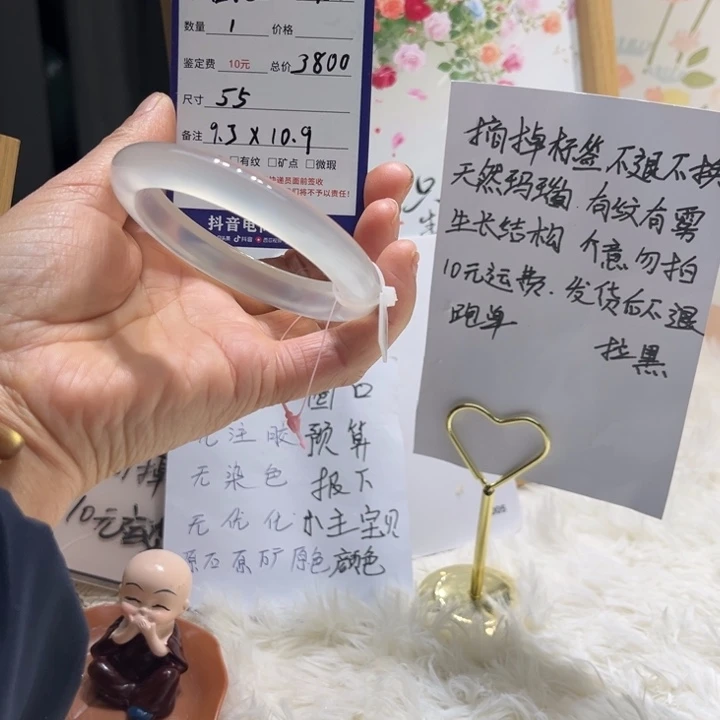 数量 1 价格
鉴定费 10元 总价 3800
尺寸 55
备注 9.3 X 10.9
□有纹 □矿点 □微瑕
快递员面前签收
们将不予以责任!
抖音电
抖音
摘掉标签不退不换
天然玛瑙.有纹有雾
生长结构 介意勿拍
10元运费.发货后不退
跑单
拉黑
无注胶 预算
无染色 报下
无优化 小主宝贝
原石原矿原色 颜色
掉
10元